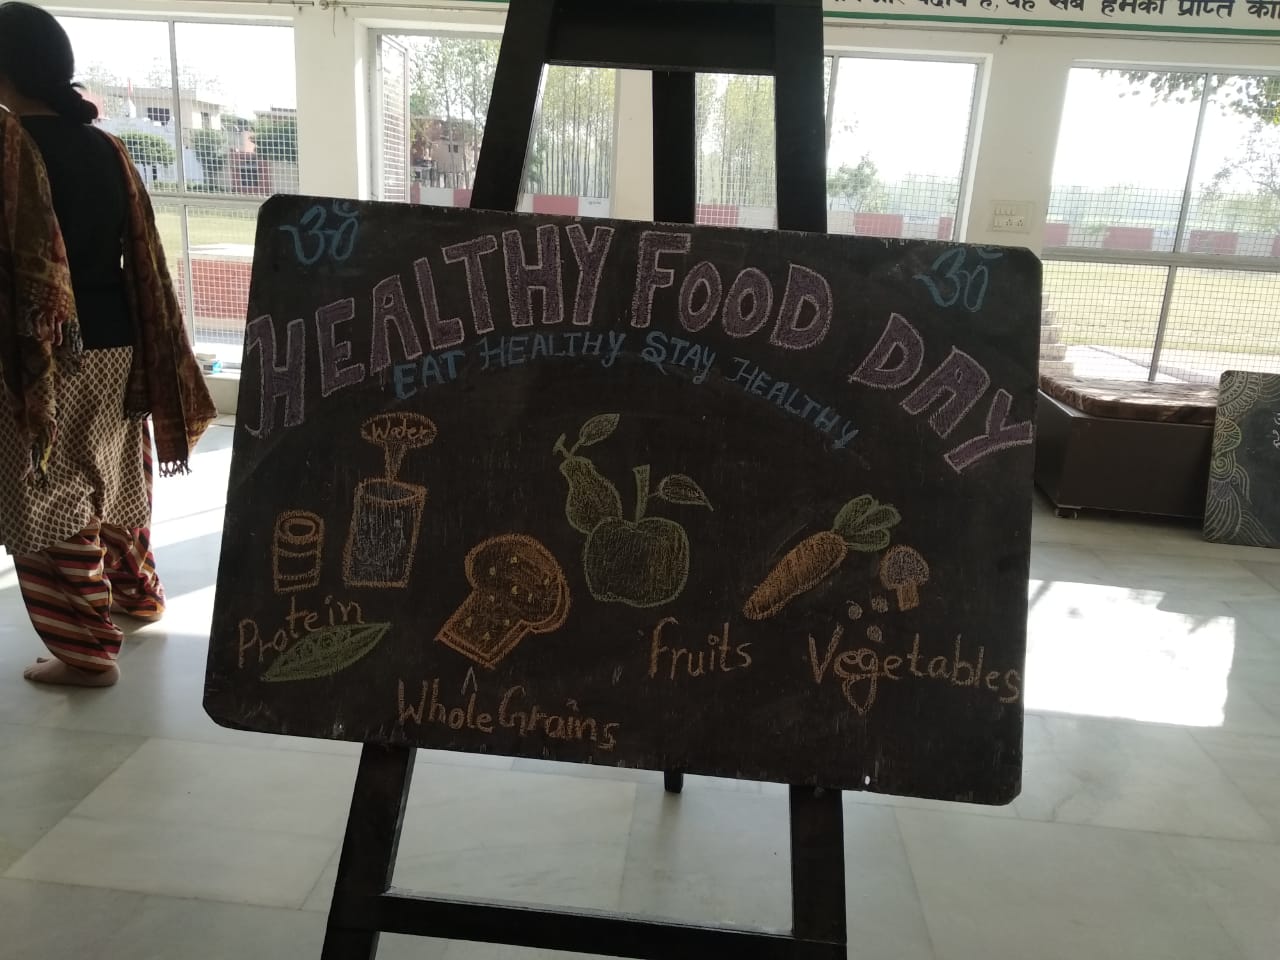 और पदार्थ है, यह सब हमको प्राप्त
ॐ ॐ
HEALTHY FOOD DAY
EAT HEALTHY STAY HEALTHY
Water
Protein
Fruits
Vegetables
Whole Grains